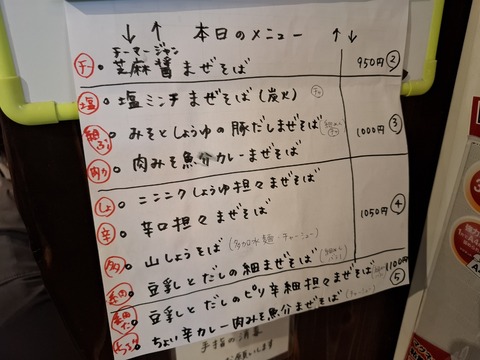 ↓ ↑ 本日のメニュー ↑ ↓
チーマージャン
チー 芝麻醤まぜそば 950円 ②
塩 塩ミンチまぜそば(炭火)
みそとしょうゆの豚だしまぜそば 1000円 ③
肉みそ魚介カレーまぜそば
しょ ニンニクしょうゆ担々まぜそば
辛 辛口担々まぜそば 1050円 ④
山しょうそば(多加水麺・チャーシュー)
豆乳とだしの細まぜそば
豆乳とだしのピリ辛細担々まぜそば 1100円
ちょい辛カレー肉みそ魚介まぜそば ⑤
手指の消毒